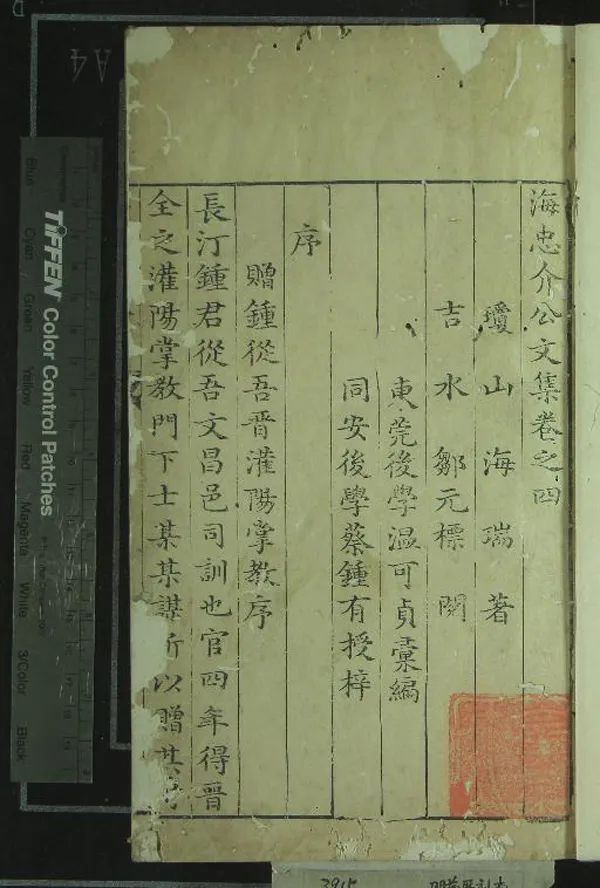 海忠介公文集卷之四
瓊山海瑞著
吉水鄒元標閱
東莞後學溫可貞彙編
同安後學蔡鍾有授梓
序
贈鍾從吾晋灌陽掌教序
長汀鍾君從吾文昌邑司訓也官四年得晋
全之灌陽掌教門下士某某謀所以贈其
TIFFEN Color Control Patches
Blue
Cyan
Green
Yellow
Red
Magenta
White
3/Color
Black
A4
3915